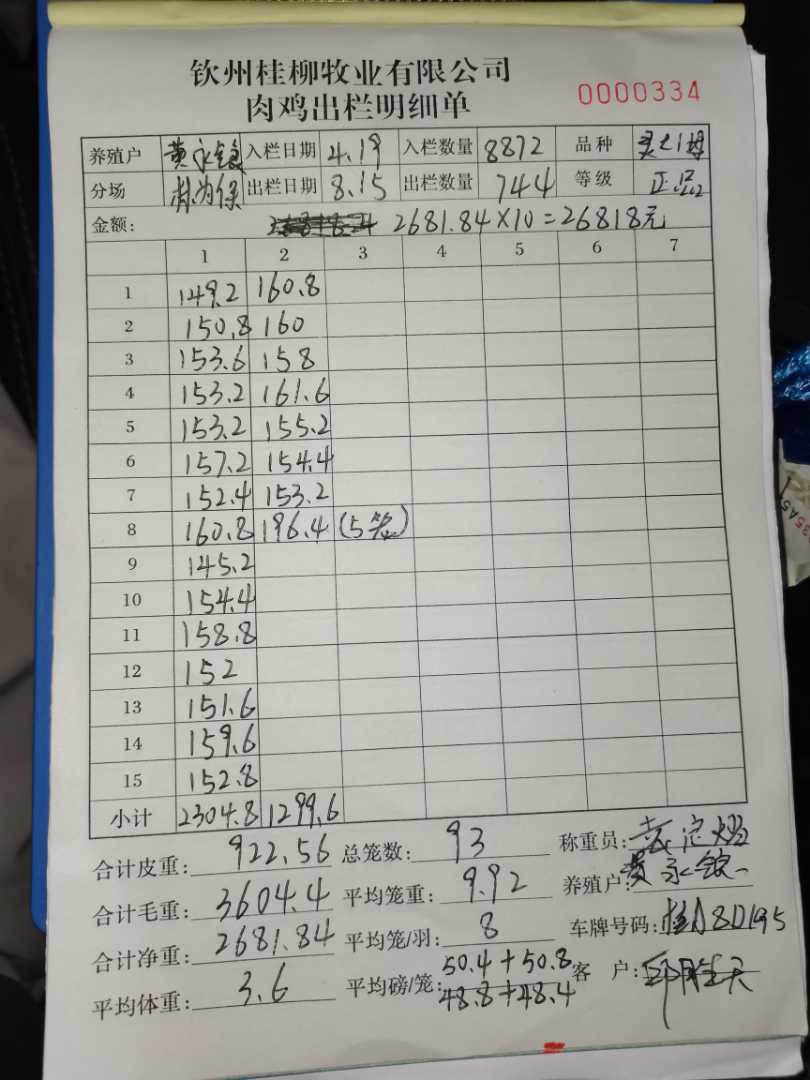 钦州桂柳牧业有限公司
肉鸡出栏明细单 0000334
养殖户 黄永钦 入栏日期 4.19 入栏数量 8872 品种
分场 林为保 出栏日期 8.15 出栏数量 744 等级 正品
金额: 2681.84×10=26818元
1 2 3 4 5 6 7
1 149.2 160.8
2 150.8 160
3 153.6 158
4 153.2 161.6
5 153.2 155.2
6 157.2 154.4
7 152.4 153.2
8 160.8 196.4 (5笼)
9 145.2
10 154.4
11 158.8
12 152
13 151.6
14 159.6
15 152.8
小计 2304.8 1299.6
合计皮重: 922.56 总笼数: 93 称重员:
合计毛重: 3604.4 平均笼重: 9.92 养殖户: 黄永钦
合计净重: 2681.84 平均笼/羽: 8 车牌号码: 8D195
平均体重: 3.6 平均磅/笼: 50.4+50.8 客 户:
48.8+48.4